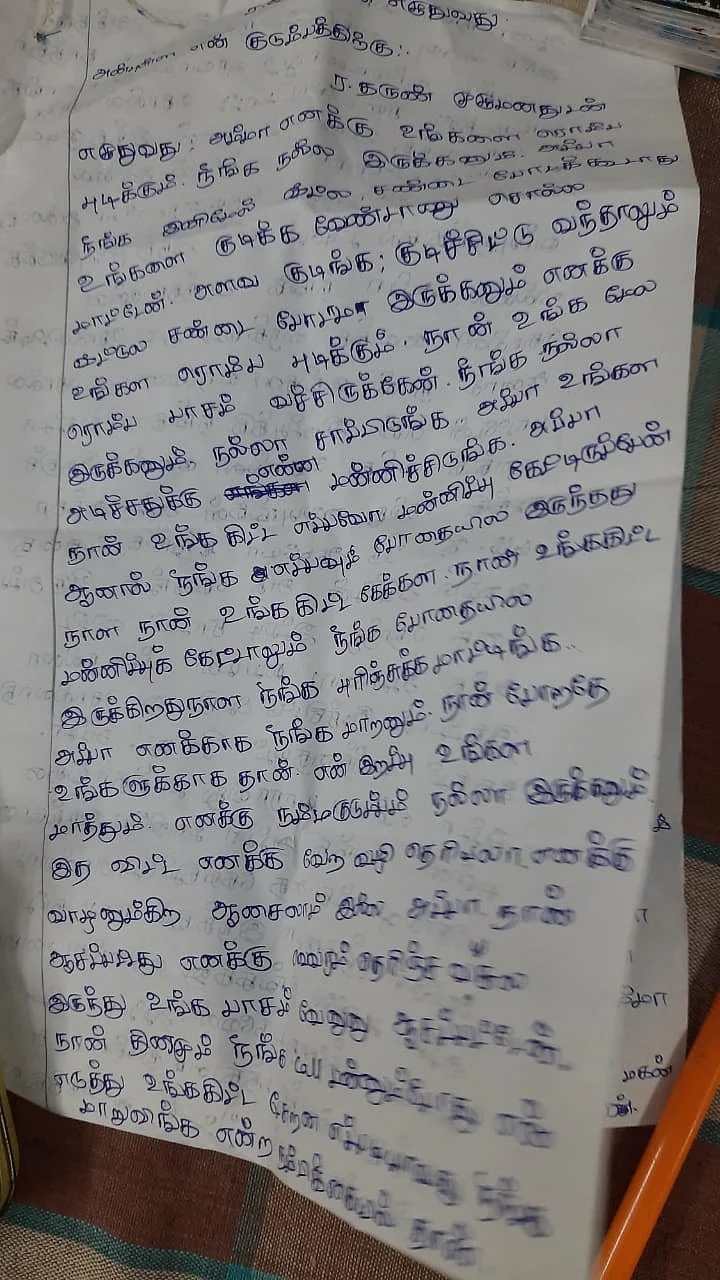 எழுதுவது:
என் குடும்பத்திற்கு:.
ர. தருண்
எழுதுவது: அம்மா எனக்கு உங்களை ரொம்ப
புடிக்கும். நீங்க நல்லா இருக்கணும். அப்பா
நீங்க இனிமேல் சண்டை போடக்கூடாது
உங்களை குடிக்க வேண்டானு சொல்ல
மாட்டேன். அளவா குடிங்க; குடிச்சிட்டு வந்தாலும்
சண்டை போடாம இருக்கனும் எனக்கு
உங்கள ரொம்ப புடிக்கும். நான் உங்க மேல
ரொம்ப பாசம் வச்சிருக்கேன். நீங்க நல்லா
இருக்கனும் நல்லா சாப்பிடுங்க. அப்பா உங்கள
அடிச்சதுக்கு என்ன மன்னிச்சிடுங்க. அப்பா
நான் உங்ககிட்ட எப்பவோ மன்னிப்பு கேட்டிருப்பேன்
ஆனால் நீங்க எப்பவும் போதையில இருந்தது
நால நான் உங்ககிட்ட கேக்கள. நான் உங்ககிட்ட
மன்னிப்புக் கேட்டாலும் நீங்க போதையில
இருக்கிறதுநால நீங்க புரிஞ்சுக்கமாட்டிங்க..
அப்பா எனக்காக நீங்க மாறனும். நான் போறதே
உங்களுக்காக தான். என் இறப்பு உங்கள
மாத்தும். எனக்கு நம்மகுடும்பம் நல்லா இருக்கனும்
இத விட்ட எனக்கு வேற வழி தெரியலபா. எனக்கு
வாழனும்கிற ஆசைலாம் இல்ல அப்பா நான்
ஆசப்பட்டது எனக்கு தெரிஞ்ச
இருந்து உங்க பாசம் வேணுனு
நான் தினமும் நீங்க
எடுத்து உங்ககிட்ட நீங்க
மாறுவிங்க என்ற நம்பிக்கையில் தான்
மகன்